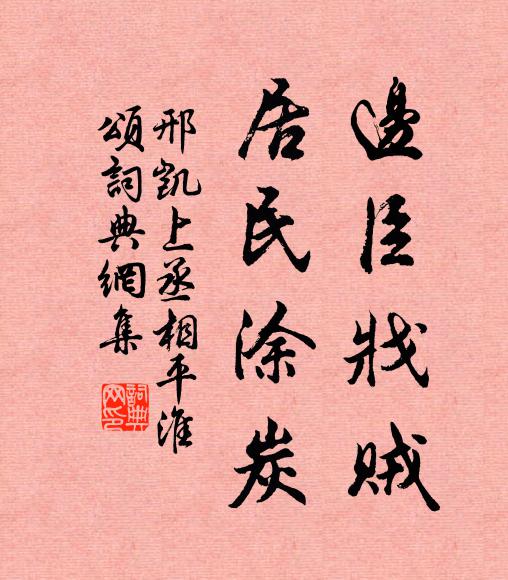 邊臣戕賊
居民涂炭
邢凱上丞相平淮
頌詞典網集
詞典
网印